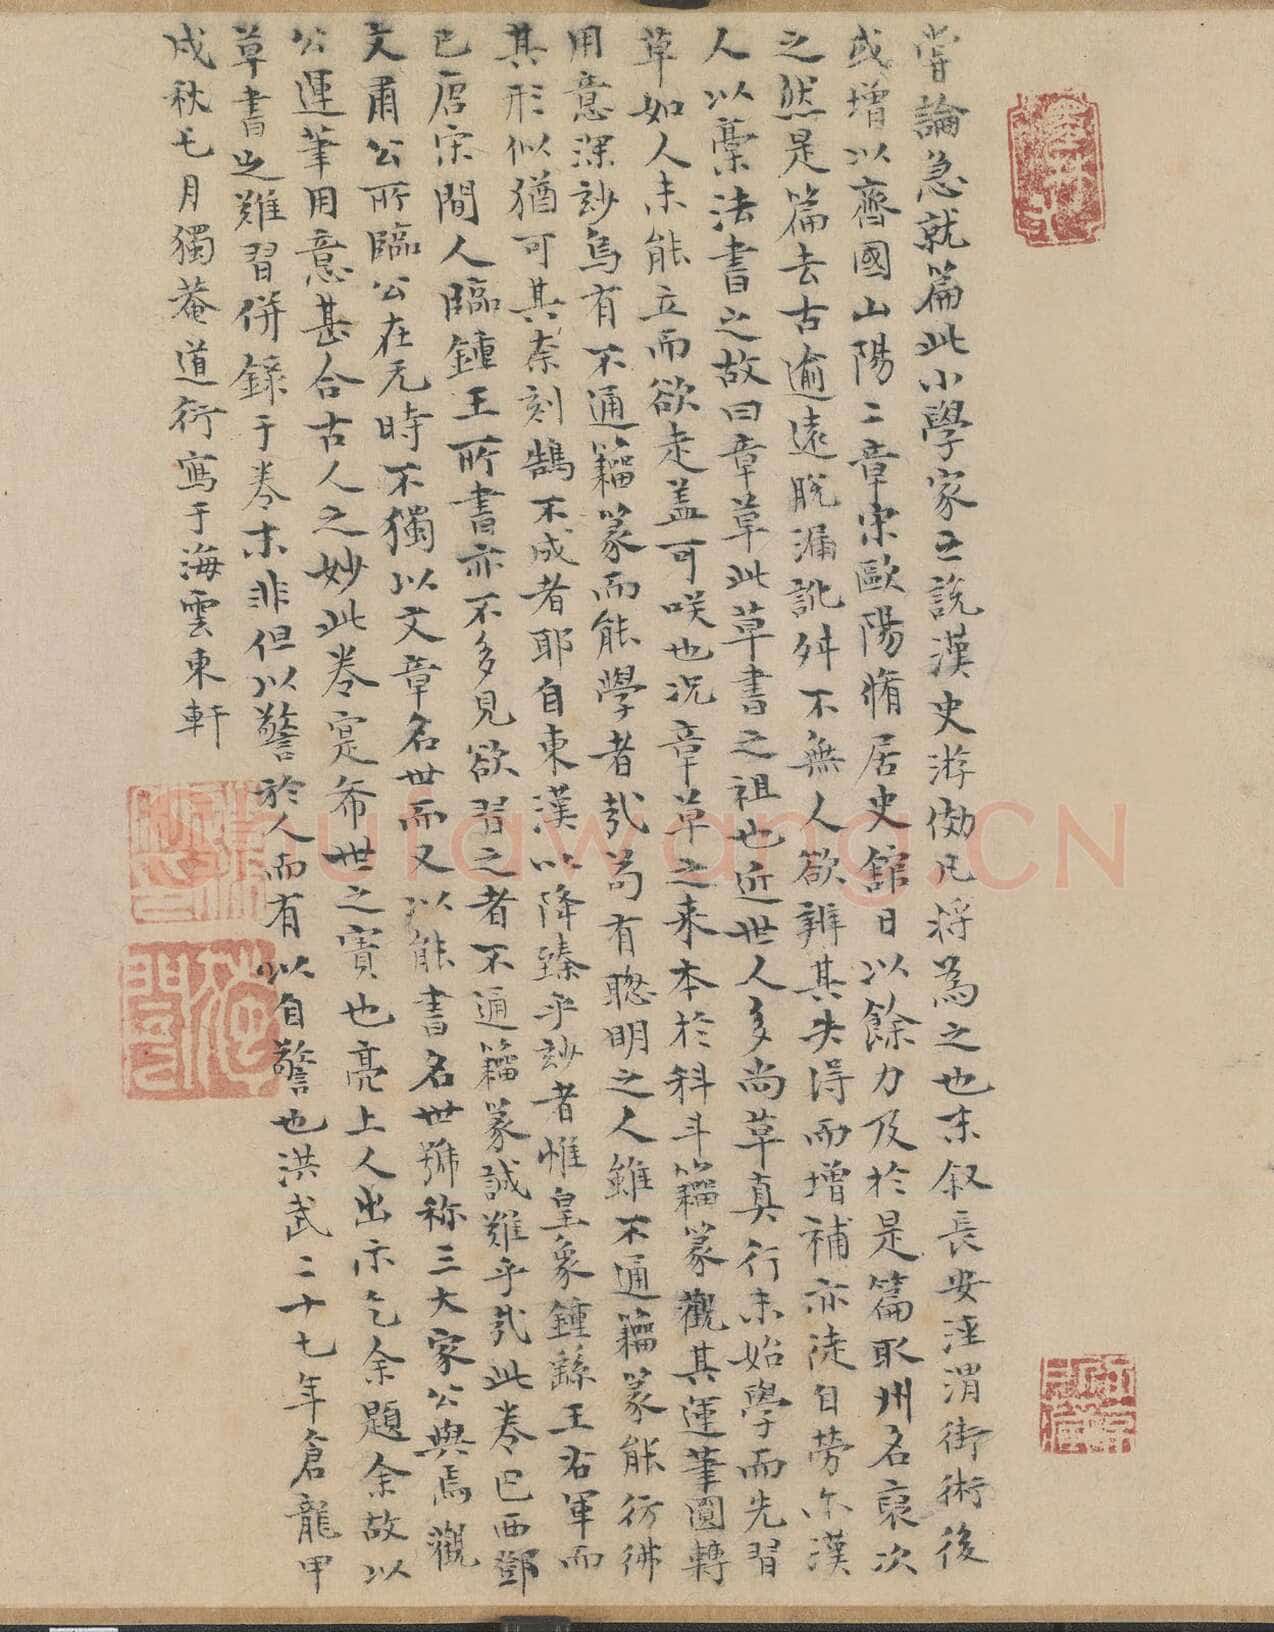 嘗論急就篇此小學家之説漢史游倣凡將為之也末叙長安涇渭街術後
或增以齊國山陽二章宋歐陽脩居史館日以餘力及於是篇取州名裒次
之然是篇去古逾遠脱漏訛舛不無人欲辨其失得而增補亦徒自勞尒漢
人以藁法書之故曰章草此草書之祖也近世人多尚草真行未始學而先習
草如人未能立而欲走盖可咲也况章草之来本於科斗籀篆觀其運筆圓轉
用意深玅烏有不通籀篆而能學者㢤苟有聦明之人雖不通籀篆能彷彿
其形似猶可其柰刻鵠不成者耶自東漢以降臻乎玅者惟皇象鍾繇王右軍而
已唐宋間人臨鍾王所書亦不多見欲習之者不通籀篆誠難乎㢤此卷巴西鄧
文肅公所臨公在元時不獨以文章名世而又以能書名世號称三大家公與焉觀
公運筆用意甚合古人之妙此卷寔希世之寳也亮上人出示乞余題余故以
草書之難習併錄于卷末非但以警於人而有以自警也洪武二十七年倉龍甲
戌秋七月獨菴道衍寫于海雲東軒
shufawang.CN